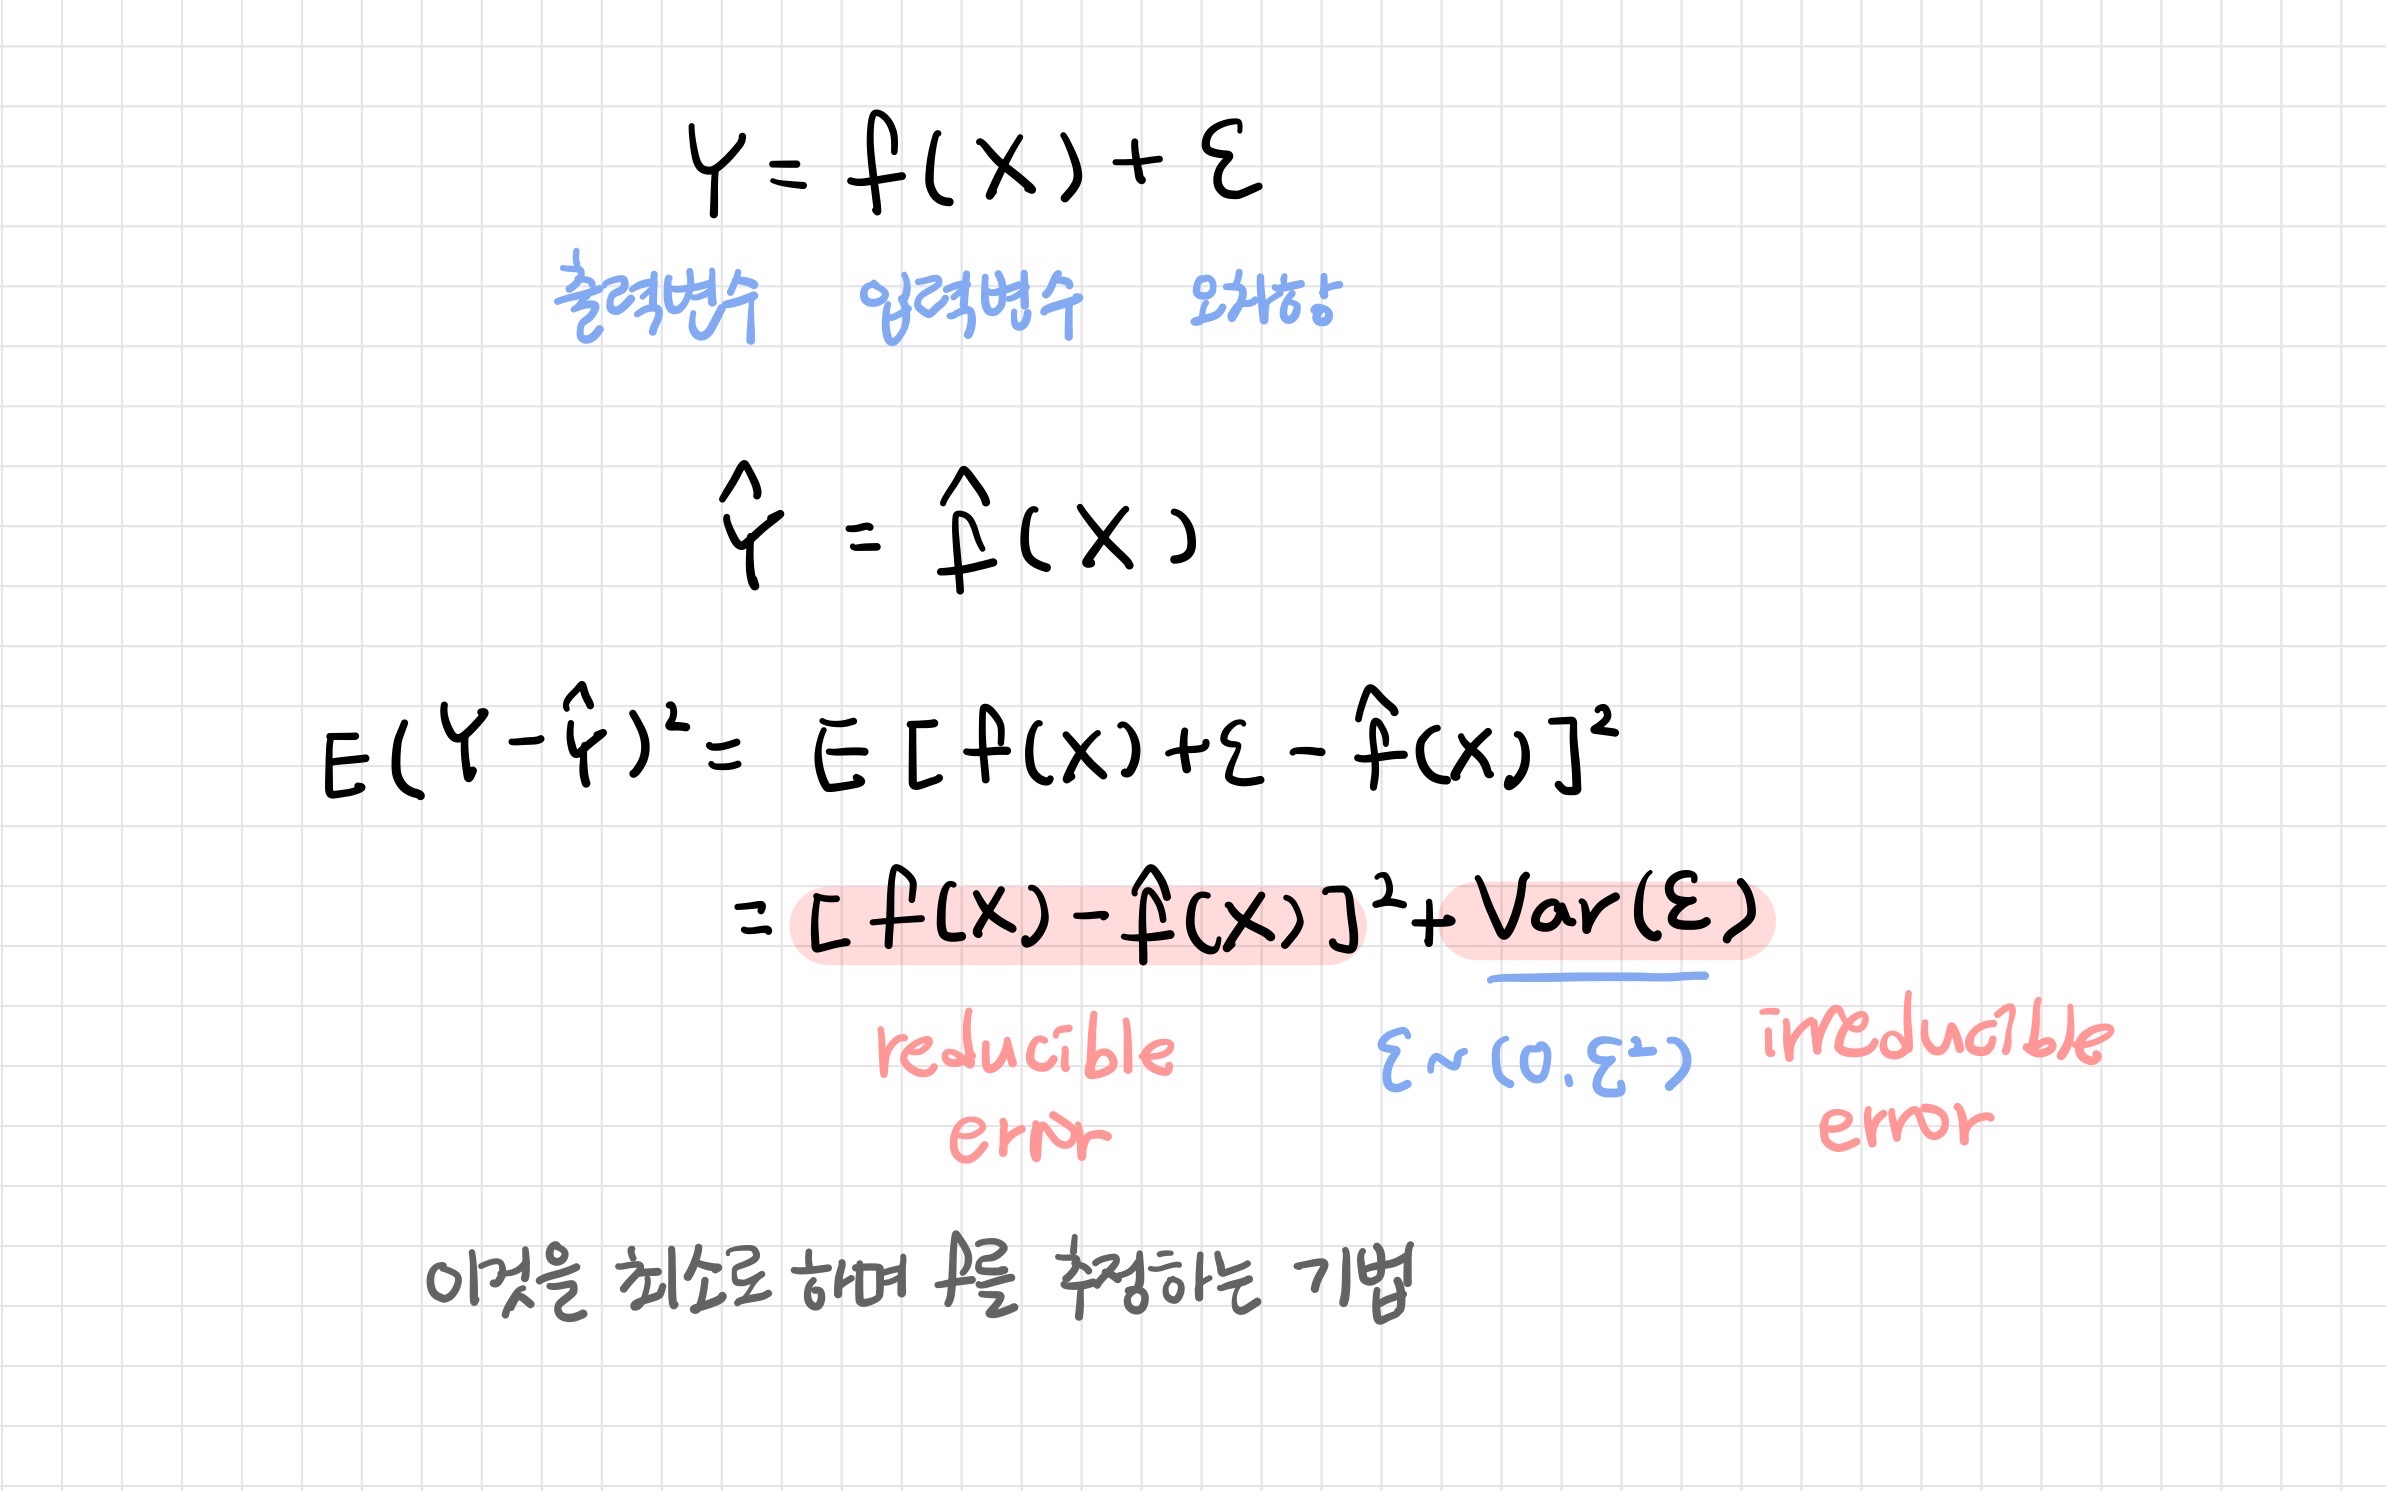 Y = f(X) + ε
출력변수 입력변수 오차항
Ŷ = f̂(X)
E(Y-Ŷ)² = E[f(X)+ε-f̂(X)]²
= [f(X)-f̂(X)]² + Var(ε)
reducible ε~(0.ε²) irreducible
error error
이것을 최소로 하며 f를 추정하는 기법